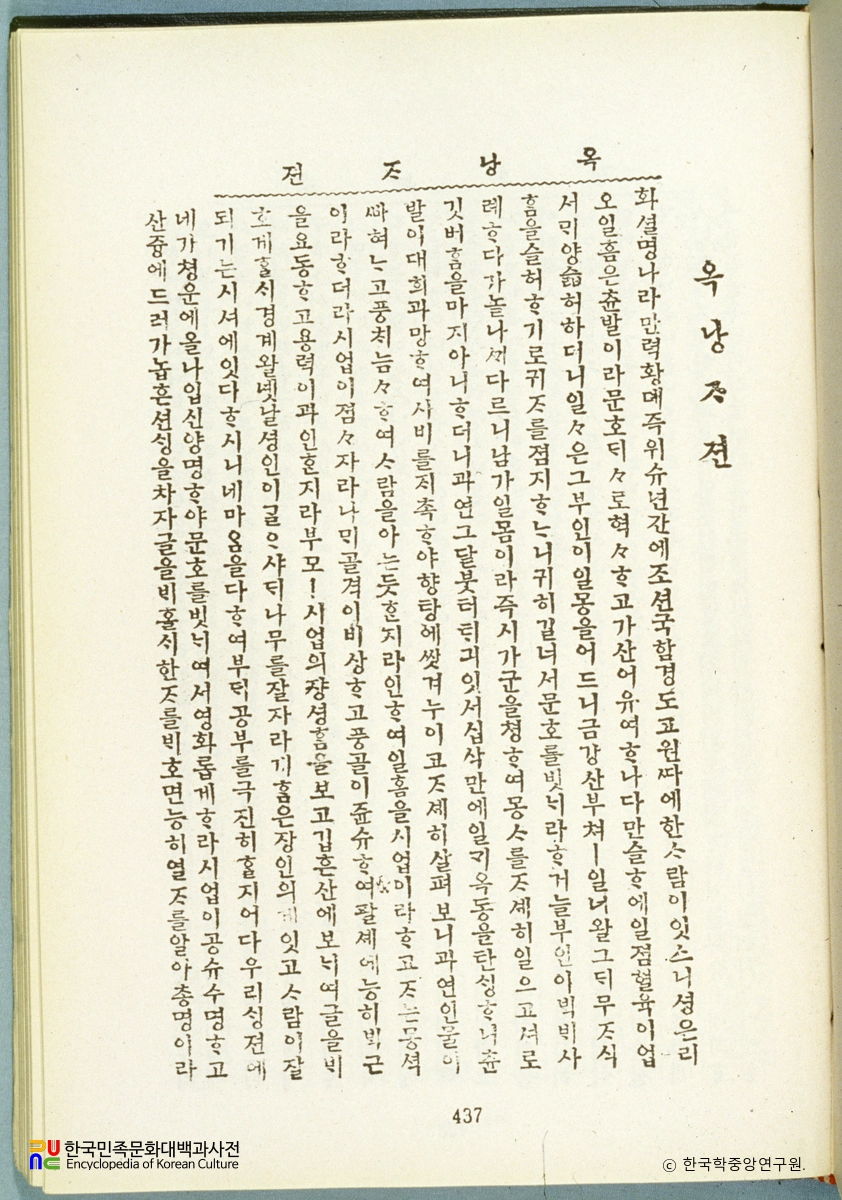 옥낭ᄌᆞ젼
옥낭ᄌᆞ젼
화셜명나라만력황뎨즉위슈년간에조션국함경도고원ᄯᅡ에한ᄉᆞ람이잇스니셩은리
오일홈은츈발이라문호ᄃᆡ々로혁々ᄒᆞ고가산어유여ᄒᆞ나다만슬ᄒᆞ에일졈혈육이업
서ᄆᆡ양슯허하더니일々은그부인이일몽을어드니금강산부쳐ㅣ일너왈그ᄃᆡ무ᄌᆞ식
홈을슬허ᄒᆞ기로귀ᄌᆞ를졈지ᄒᆞᄂᆞ니귀히길너서문호를빗ᄂᆡ라ᄒᆞ거늘부인이ᄇᆡᆨᄇᆡ사
례ᄒᆞ다가놀나ᄭᆡ다르니남가일몽이라즉시가군을쳥ᄒᆞ여몽ᄉᆞ를ᄌᆞ셰히일으고셔로
깃버홈을마지아니ᄒᆞ더니과연그달붓터ᄐᆡ긔잇서십삭만에일ᄀᆡ옥동을탄ᄉᆡᆼᄒᆞ니츈
발이대희과망ᄒᆞ여시비를ᄌᆡ촉ᄒᆞ야향탕에씻겨누이고ᄌᆞ셰히살펴보니과연인물이
ᄲᅡ혀ᄂᆞ고풍치늠々ᄒᆞ여ᄉᆞ람을아는듯ᄒᆞᆫ지라인ᄒᆞ여일홈을시업이라ᄒᆞ고ᄌᆞ는몽셕
이라ᄒᆞ더라시업이졈々자라나ᄆᆡ골격이비상ᄒᆞ고풍골이쥰슈ᄒᆞ여팔셰에능히ᄇᆡᆨ근
을요동ᄒᆞ고용력이과인ᄒᆞᆫ지라부모ㅣ시업의쟝셩홈을보고깁흔산에보ᄂᆡ여글을ᄇᆡ
호게ᄒᆞᆯᄉᆡ경계왈녯날셩인이ᄀᆞᆯᄋᆞ샤ᄃᆡ나무를잘자라게홈은장인의게잇고ᄉᆞ람이잘
되기는시셔에잇다ᄒᆞ시니네마ᄋᆞᆷ을다ᄒᆞ여부ᄃᆡ공부를극진히ᄒᆞᆯ지어다우리ᄉᆡᆼ젼에
네가쳥운에올나입신양명ᄒᆞ야문호를빗ᄂᆡ여서영화롭게ᄒᆞ라시업이공슈수명ᄒᆞ고
산즁에드러가놉흔션ᄉᆡᆼ을차자글을ᄇᆡ홀ᄉᆡ한ᄌᆞ를ᄇᆡ호면능히열ᄌᆞ를알아총명이라
437
한국민족문화대백과사전
Encyclopedia of Korean Culture
ⓒ 한국학중앙연구원.